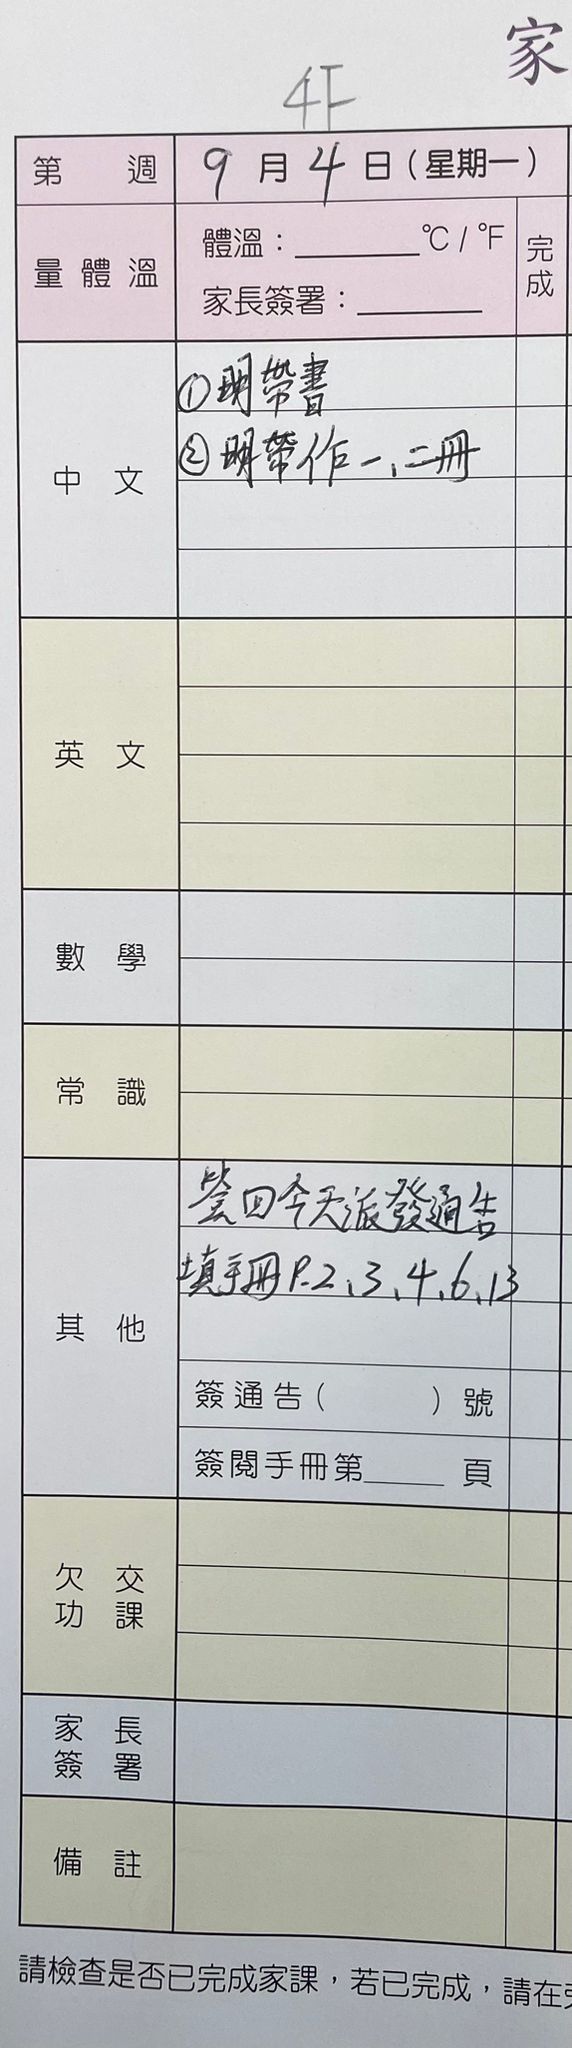 家
4F
第 週 9月4日(星期一)
量體溫 體溫：______°C / °F 完成
家長簽署：______
中文 ①明帶書
②明帶作一、二冊
英文
數學
常識
其他 簽回今天派發通告
填手冊P.2、3、4、6、13
簽通告( )號
簽閱手冊第____頁
欠交
功課
家長
簽署
備註
請檢查是否已完成家課，若已完成，請在